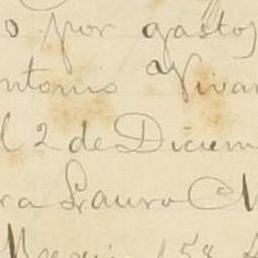 o por gastos
ntonio Vivan
l 2 de Diciem
ra Lauro M